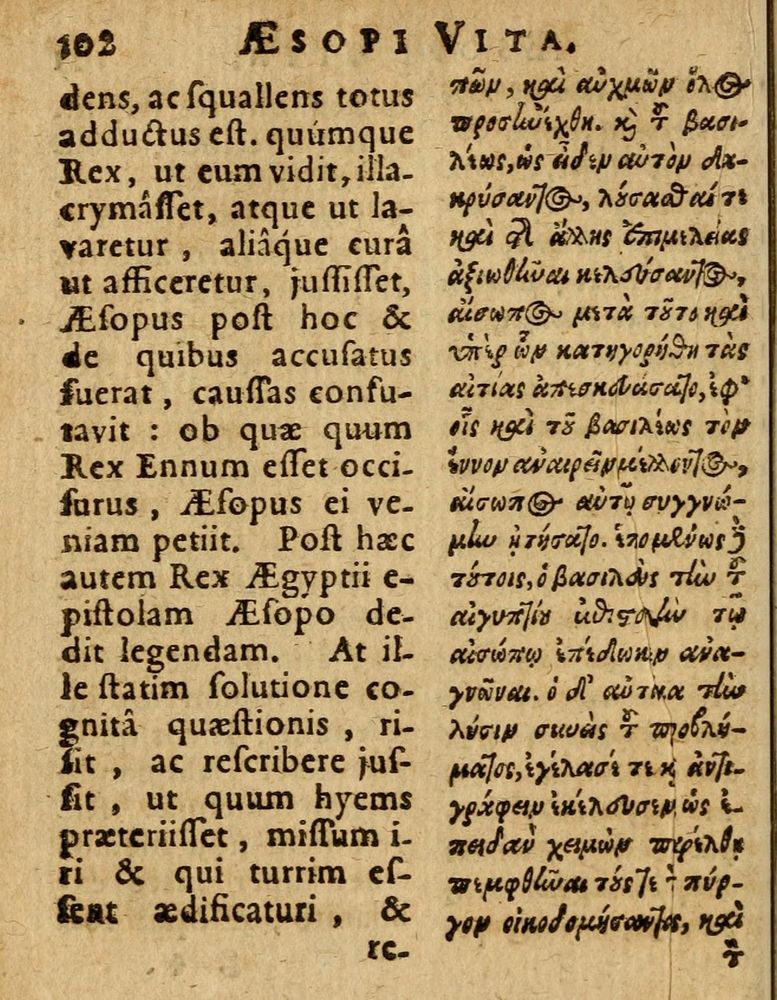 102 ÆSOPI VITA.
dens, ac ſquallens totus
adductus eſt. quúmque
Rex, ut eum vidit, illa-
crymâſſet, atque ut la-
varetur, aliâq́ue curâ
ut afficeretur, juſſiſſet,
Æſopus poſt hoc &
de quibus accuſatus
fuerat, cauſſas confu-
tavit : ob quæ quum
Rex Ennum eſſet occi-
ſurus, Æſopus ei ve-
niam petiit. Poſt hæc
autem Rex Ægyptii e-
piſtolam Æſopo de-
dit legendam. At il-
le ſtatim ſolutione co-
gnitâ quæſtionis, ri-
ſit, ac reſcribere juſ-
ſit, ut quum hyems
præteriiſſet, miſſum i-
ri & qui turrim eſ-
ſent ædificaturi, &
re-
πῶν, καὶ αὐχμῶν ὅλος
προσηνέχθη. καὶ τοῦ βασι-
λέως, ὡς εἶδεν αὐτὸν δα-
κρύσαντος, λούσασθαί τε
καὶ τῆς ἄλλης ἐπιμελείας
ἀξιωθῆναι κελεύσαντος,
αἴσωπος μετὰ τοῦτο καὶ
ὑπὲρ ὧν κατηγορήθη τὰς
αἰτίας ἀπεσκευάσατο, ἐφ'
οἷς καὶ τοῦ βασιλέως τὸν
ἔννον ἀναιρεῖν μέλλοντος,
αἴσωπος αὐτῷ συγγνώ-
μην ᾐτήσατο. ἑπομένως δὲ
τούτοις, ὁ βασιλεὺς τὴν τοῦ
αἰγυπτίου ἐπιστολὴν τῷ
αἰσώπῳ ἐπέδωκεν ἀνα-
γνῶναι. ὁ δ' αὐτίκα τὴν
λύσιν συνεὶς τοῦ προβλή-
ματος, ἐγέλασέ τε καὶ ἀντι-
γράφειν ἐκέλευσεν, ὡς ἐ-
πειδὰν χειμὼν παρέλθῃ
πεμφθῆναι τούς τε τὸν πύρ-
γον οἰκοδομήσοντας, καὶ
τὸν